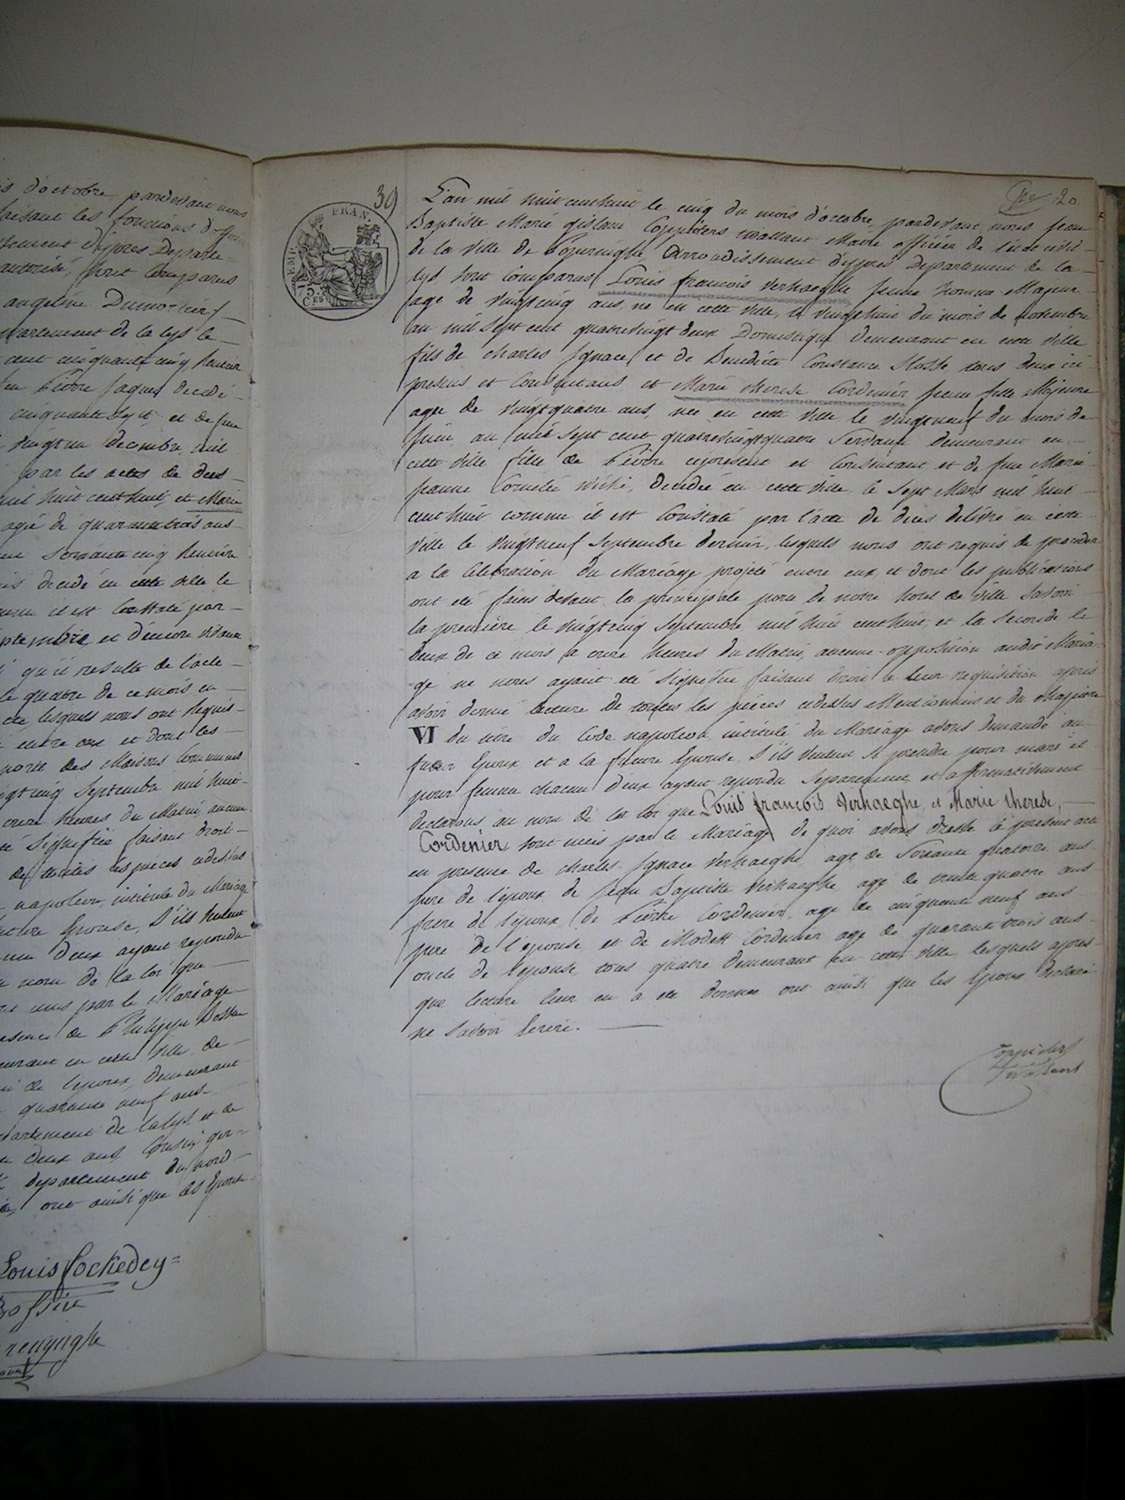 is d'octobre pardevant nous
faisant les fonctions d'offi
autorisé, sont comparus
angeline Dumortier
partement de la lys le
cent cinquante cinq
en Pierre Jaques décédé
cinquante sept et de feue
vingt un decembre mil
par les actes de deces
mil huit cent huit, et Marie
agé de quarante trois ans
soixante cinq
decidé en cette ville le
il est Constaté par
septembre et d'encore
qu'il resulte de l'acte
le quatre de ce mois en
lesquels nous ont requis
entre eux et dont les
porte des Maisons Communes
vingt cinq Septembre mil huit
onze heures du Matin aucune
été Signifiée faisant droit
de toutes les pièces cidessus
napoleon, intitulé du Mariage
future Epouse, S'ils veulent
deux ayant repondu
nom de la loi que
unis par le Mariage
presence de Philippe
demeurant en cette ville de
de l'epoux, demeurant
quarante neuf ans
departement de la lys et de
deux ans Cousin ger
departement du nord
ont ainsi que les Epoux
Louis Cockedey
39
FRAN.
5 CES
20
L'an mil huit cent huit le cinq du mois d'octobre, pardevant nous Jean
Baptiste Marie Gislain Coppiters Wallant Maire officier de l'etat civil
de la ville de Poperinghe Arrondissement d'ypres Departement de la
lys sont Comparus Louis françois Verhaeghe jeune homme Majeur
age de vingt cinq ans, né en cette ville, le vingt huit du mois de novembre
an mil sept cent quatre vingt deux Domestique demeurant en cette ville
fils de Charles Ignace et de Benedicte Constance tous deux ici
presens et Consentans et Marie therese Cordenier jeune fille Majeure
age de vingt quatre ans, née en cette ville le vingt neuf du mois de
juin an mil sept cent quatre vingt quatre Servante demeurant en
cette ville fille de Pierre cipresent et Consentant et de feue Marie
jeanne Cornelie décédée en cette ville le Sept Mars mil huit
cent huit comme il est Constaté par l'acte de deces delivré en cette
ville le vingt neuf Septembre dernier, lesquels nous ont requis de proceder
a la Celebration du Mariage projeté entre eux, et dont les publications
ont été faites devant la principale porte de notre hotel de ville savoir
la premiere le vingt cinq Septembre mil huit cent huit, et la seconde le
deux de ce mois a onze heures du Matin, aucune opposition audit Maria
ge ne nous ayant été Signifiée faisant droit a leur requisition apres
avoir donné lecture de toutes les pièces cidessus Mentionnées et du chapitre
VI du titre du Code napoleon intitulé du Mariage avons demandé au
futur Epoux et a la future Epouse, S'ils veulent se prendre pour mari et
pour femme chacun d'eux ayant repondu Separement et affirmativement
declarons au nom de la loi que Louis françois Verhaeghe, et Marie therese,
Cordenier sont unis par le Mariage de quoi avons dressé le present acte
en presence de Charles Ignace Verhaeghe, age de Soixante quatorze ans
pere de l'epoux de jean Baptiste Verhaeghe agé de trente quatre ans
frere de l'epoux, de Pierre Cordenier, age de cinquante neuf ans
pere de l'epouse et de Modest Cordenier age de quarante trois ans
oncle de l'epouse tous quatre demeurant en cette ville, lesquels apres
que lecture leur en a été donnée ont ainsi que les Epoux declaré
ne savoir Ecrire.
Coppieters
Wallant